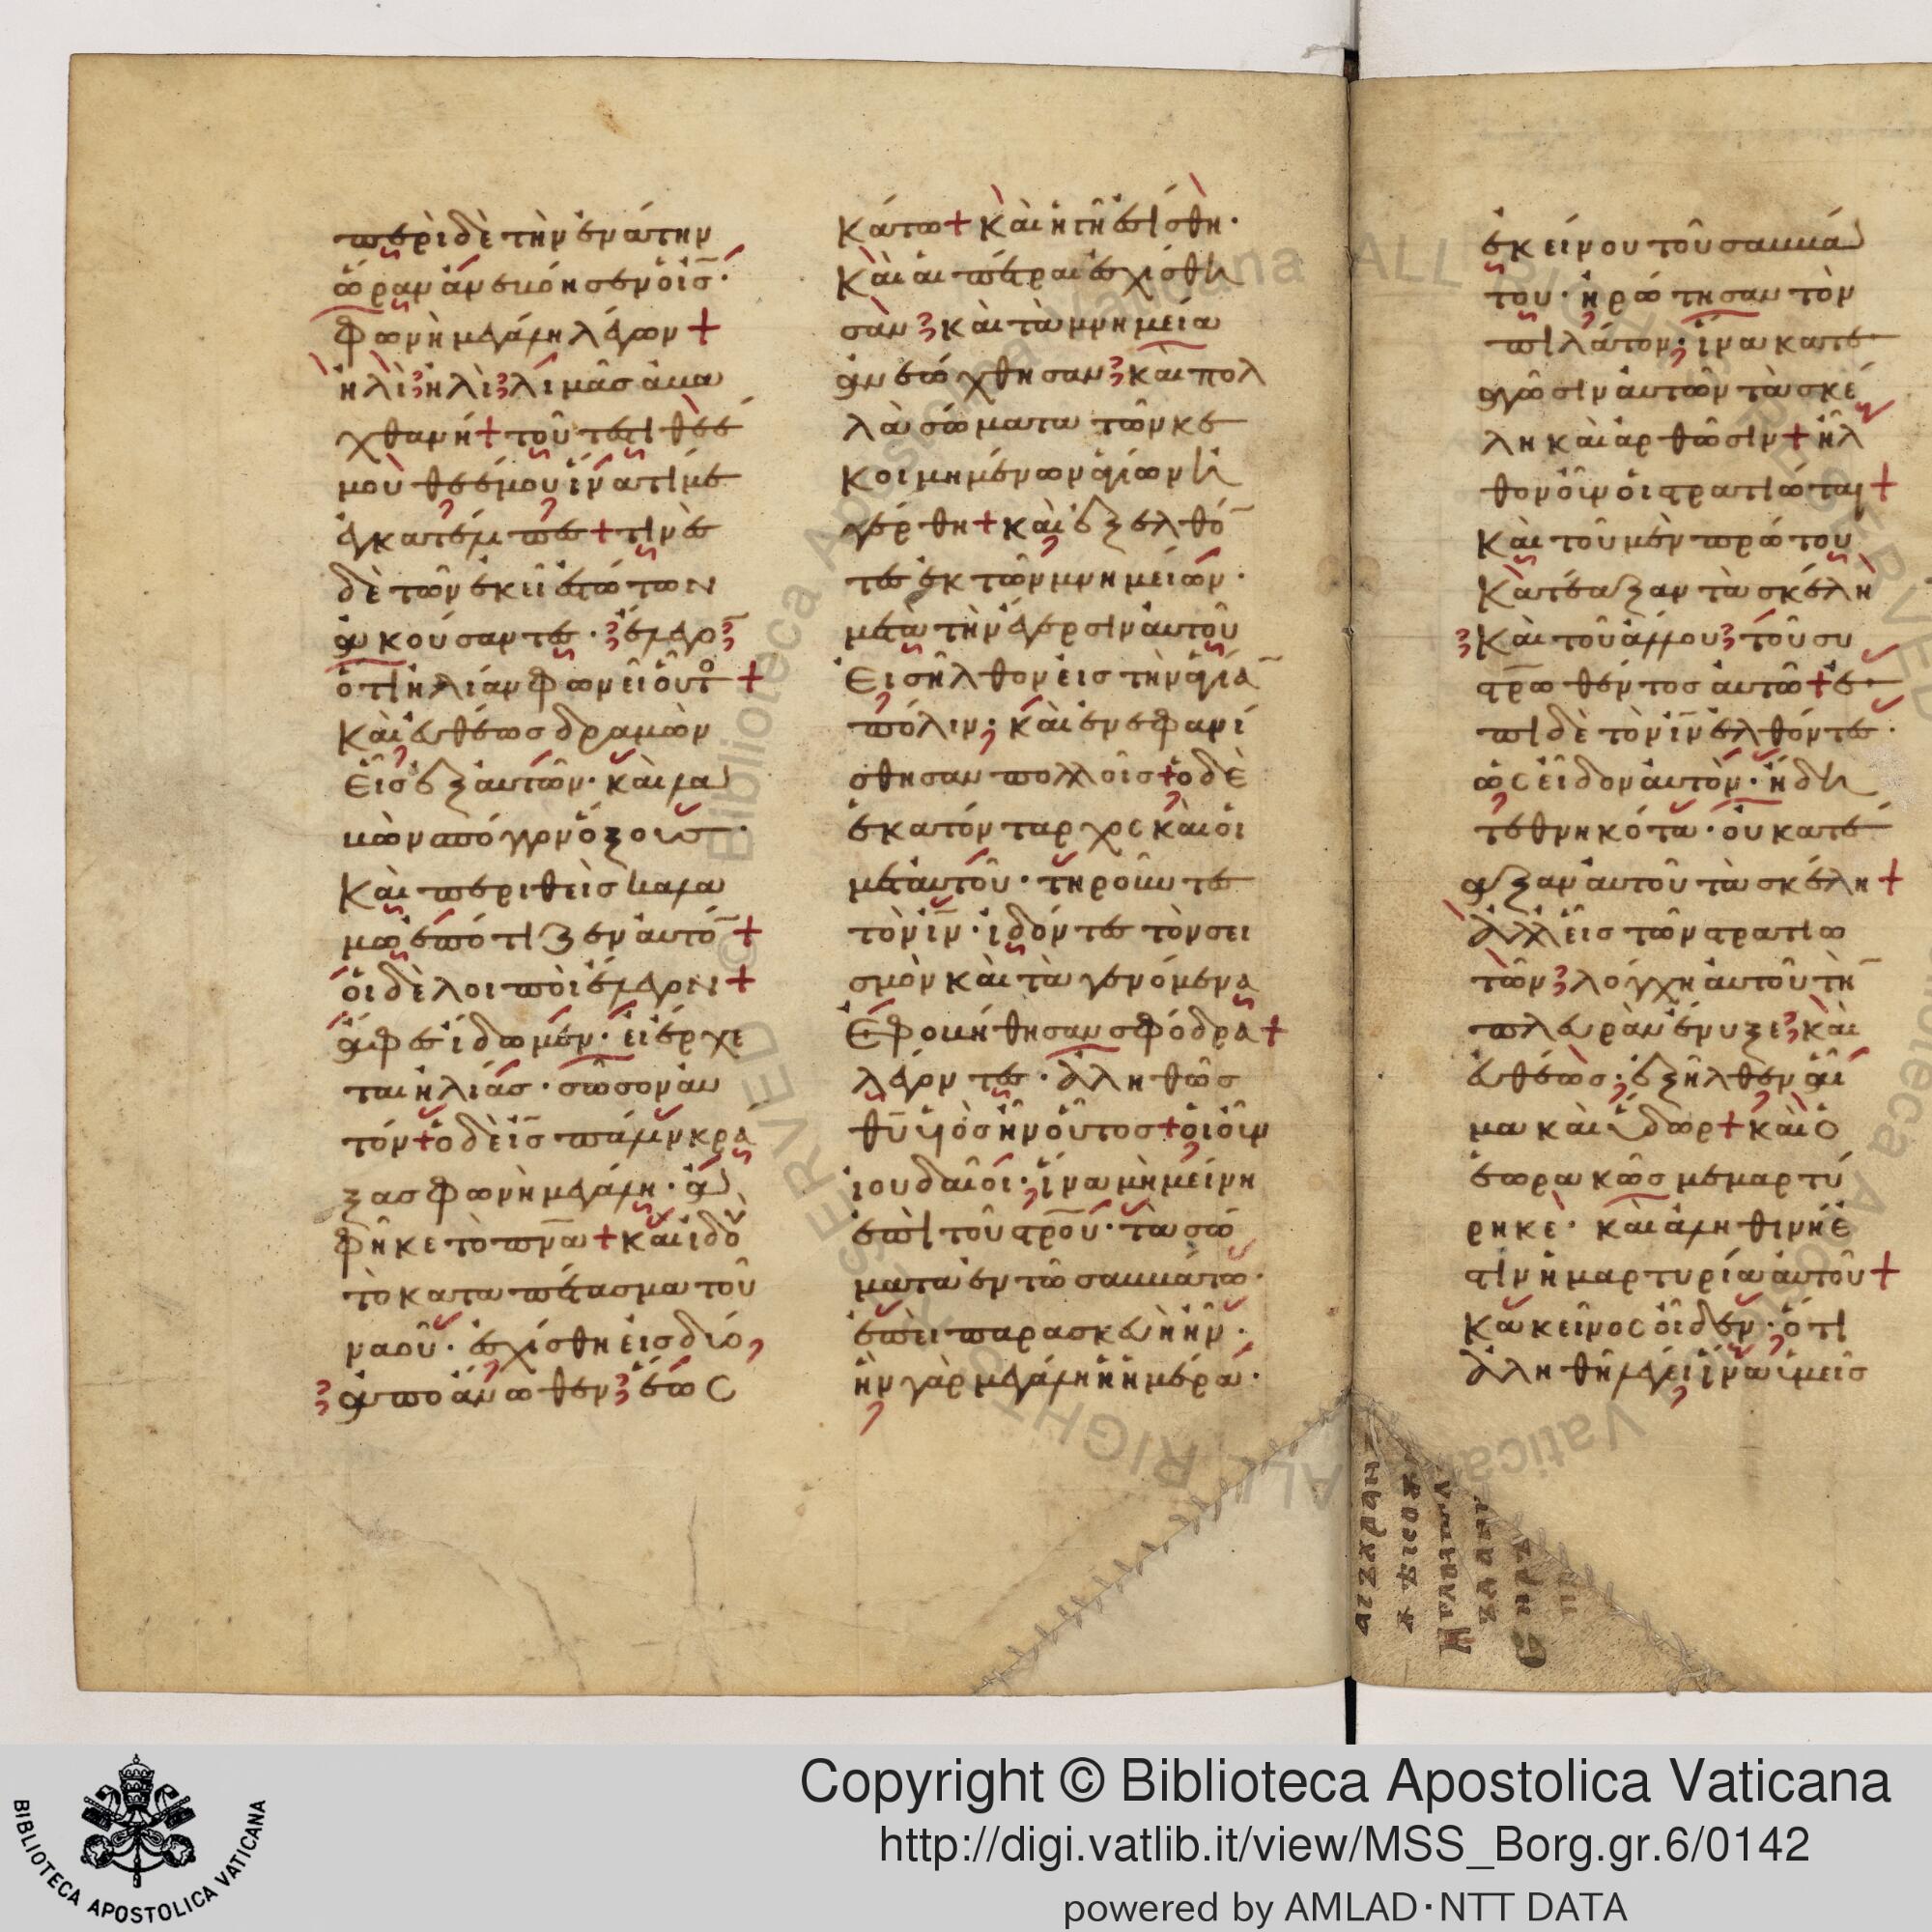 περὶ δὲ τὴν ἐνάτην
ὥραν ἀνεβόησεν ὁ ἰς̅·
φωνὴ μεγάλη λέγων +
ἠλὶ ἠλὶ λιμᾶσαβα
χθανή + τοῦτέστι θεέ
μου θεέ μου ἵνατί με
ἐγκατέλιπες + τινὲς
δὲ τῶν ἐκεῖ ἑστώτων
ἀκούσαντες· ἔλεγο̅
ὅτι ἠλίαν φωνεῖ οὗτο
Καὶ εὐθέως δραμὼν
εἷς ἐξ αὐτῶν· καὶ λα
βὼν σπόγγον ὄξους·
Καὶ περιθεὶς καλά
μω ἐπότιζεν αὐτό̅ +
οἱ δὲ λοιποὶ ἔλεγον +
ἄφες ἴδωμεν· εἰ ἔρχε
ται ἠλιάς· σῶσον αὐ
τόν + ὁ δὲ ἰς̅ πάλιν κρά
ξας φωνὴ μεγάλη· ἀ
φῆκε τὸ πν̅α + καὶ ἰδοὺ
τὸ καταπέτασμα τοῦ
ναοῦ· ἐσχίσθη εἰς δύο,
ἀπο ἄνωθεν ἕως
Κάτω + Καὶ ἡ γῆ ἐσίσθη·
Καὶ αἱ πέτραι ἐσχίσθη
σαν καὶ τὰ μνημεία
ἀνεώχθησαν καὶ πολ
λὰ σώματα τῶν κε
κοιμημένων ἁγίων ἠ
γέρθη + καὶ ἐξελθό̅
τες ἐκ τῶν μνημείων·
μετὰ τὴν ἔγερσιν αὐτοῦ
Εἰσῆλθον εἰς τὴν ἁγία̅
πόλιν· καὶ ἐνεφανί
σθησαν πολλοῖς + ὁ δὲ
ἑκατόνταρχος καὶ οἱ
μετ αὐτοῦ· τηροῦντες
τὸν ἰν̅· ἰδόντες τὸν σει
σμὸν καὶ τὰ γενόμενα
Ἐφοβήθησαν σφόδρα +
λέγοντες· ἀληθῶς
θυ̅ υἱὸς ἦν οὗτος + οἱ οὖν
ἰουδαῖοι· ἵνα μὴ μείνη
ἐπὶ τοῦ στρ̅ου· τὰ σώ
ματα ἐν τῶ σαββάτω·
ἐπεὶ παρασκευὴ ἦν·
ἦν γὰρ μεγάλη ἡ ἡμέρα·
ἐκείνου τοῦ σαββά
του· ἠρώτησαν τὸν
πιλάτον· ἵνα κατε
αγῶσιν αὐτῶν τὰ σκέ
λη καὶ ἀρθῶσιν + ἦλ
θον οὖν οἱ στρατιώται +
Καὶ τοῦ μὲν πρώτου
Κατέαξαν τὰ σκέλη
Καὶ τοῦ ἄλλου τοῦ συ
στρ̅ωθέντος αὐτῶ + ἐ
πὶ δὲ τὸν ἰν̅ ἐλθόντες·
ὡς εἶδον αὐτὸν· ἤδη
τεθνηκότα· οὐ κατέ
αξαν αὐτοῦ τὰ σκέλη +
ἀλλ εἷς τῶν στρατιω
τῶν λόγχη αὐτοῦ τὴ̅
πλευρὰν ἔνυξε καὶ
εὐθέως· ἐξῆλθεν αἷ
μα καὶ ὕδωρ + καὶ ὁ
ἑωρακῶς μεμαρτύ
ρηκε· καὶ ἀληθινὴ ἐ
στὶν ἡ μαρτυρία αὐτοῦ +
Κακεῖνος οἶδεν· ὅτι
ἀληθῆ λέγει ἵνα ὑμεῖς
Biblioteca Apostolica Vaticana ALL RIGHTS RESERVED ©
BIBLIOTECA APOSTOLICA VATICANA
Copyright © Biblioteca Apostolica Vaticana
http://digi.vatlib.it/view/MSS_Borg.gr.6/0142
powered by AMLAD·NTT DATA